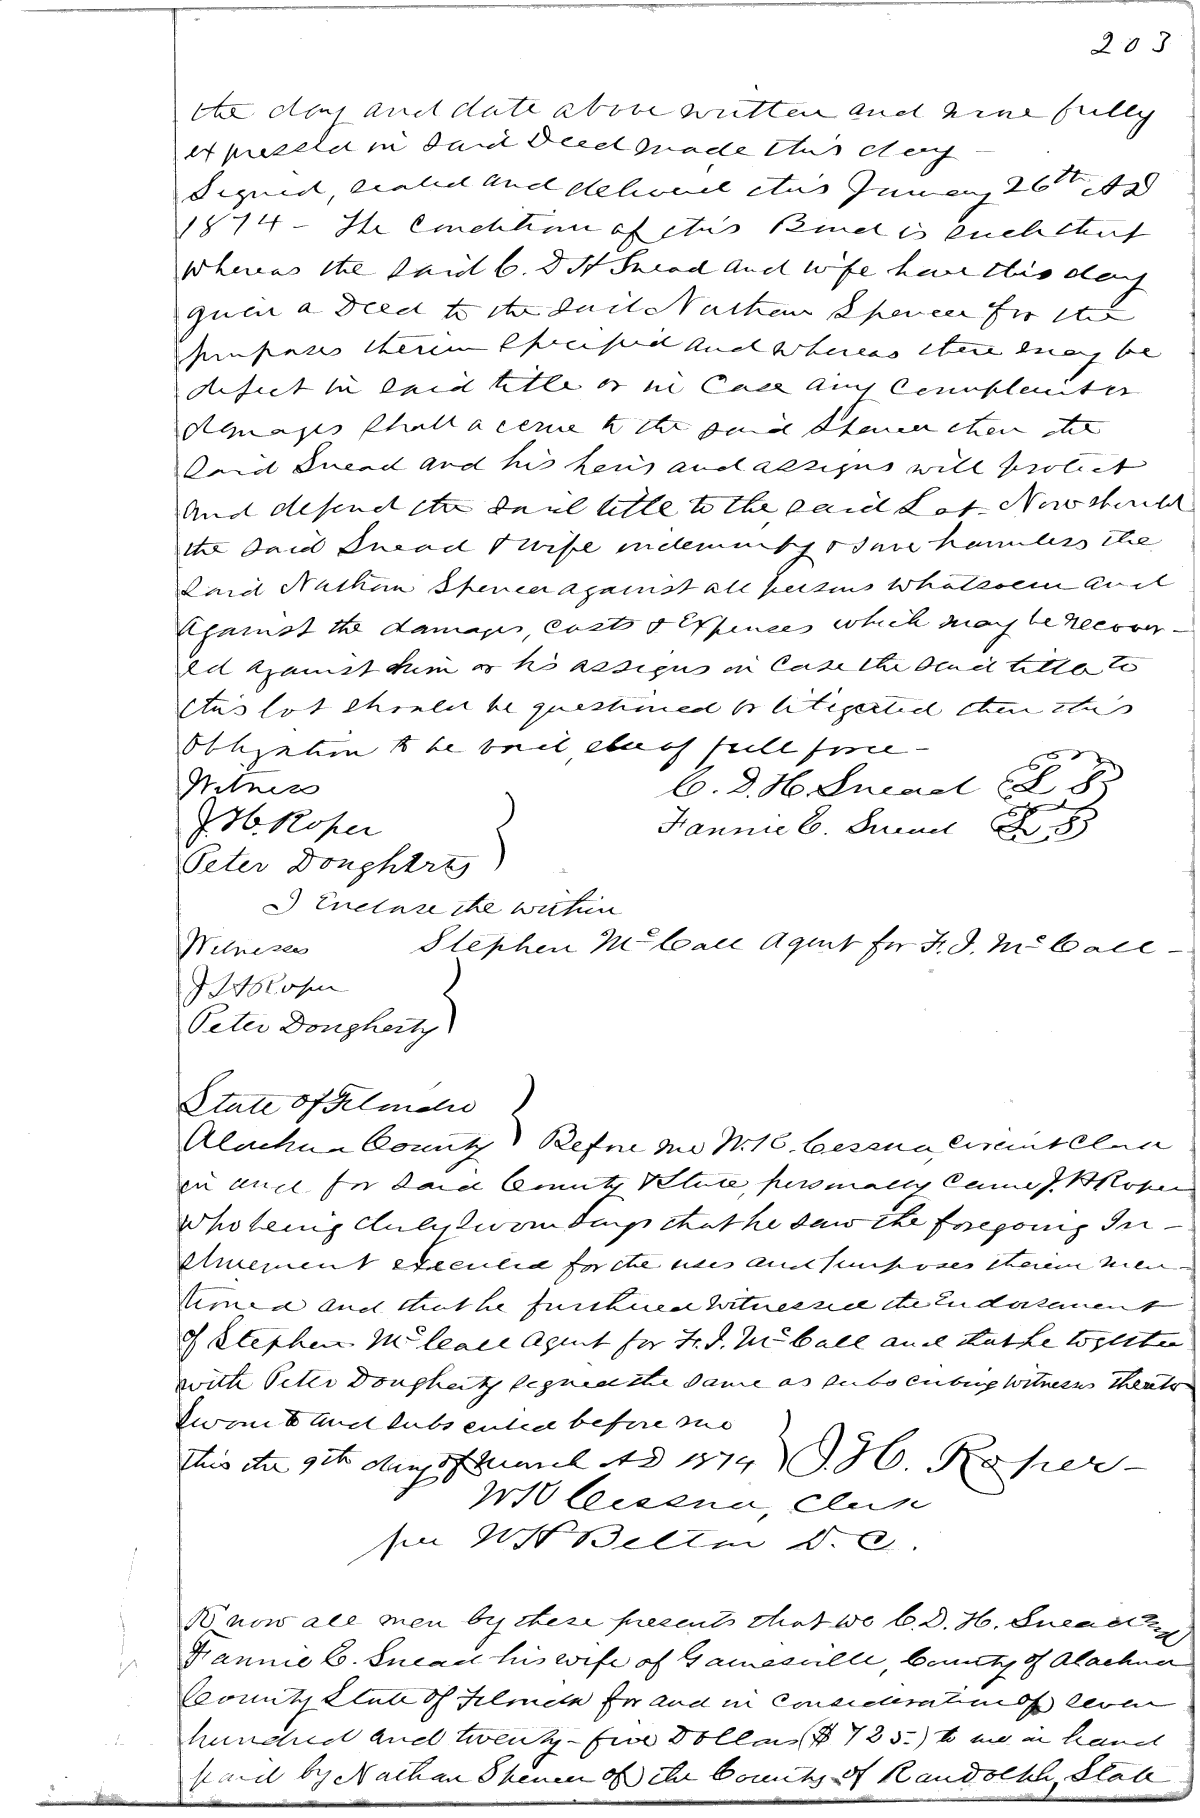 203
the day and date above written and more fully
expressed in said Deed made this day –
Signed, sealed and delivered this January 26th AD
1874 – The Condition of this Bond is such that
whereas the said C. D H Snead and wife have this day
given a Deed to the said Nathan Spencer for the
purposes therein specified and whereas there may be
defect in said title or in Case any Complaint or
damages shall accrue to the said Spencer then the
said Snead and his heirs and assigns will protect
and defend the said title to the said Lot – Now should
the said Snead & wife indemnify & save harmless the
said Nathan Spencer against all persons whatsoever and
against the damages, costs & Expenses which may be recover–
ed against him or his assigns in Case the said title to
this lot should be questioned or litigated then this
Obligation to be void, else of full force –
Witness C. D. H. Snead LS
J. H. Roper Fannie E. Snead LS
Peter Dougherty
I Endorse the within
Witnesses Stephen McCall Agent for F. J. McCall –
J H Roper
Peter Dougherty
State of Florida
Alachua County Before me W. K. Cessna, Circuit Clerk
in and for said County & State, personally came J. H Roper
who being duly sworn says that he saw the foregoing In–
struement executed for the uses and purposes therein men–
tioned and that he further witnessed the Endorsement
of Stephen McCall Agent for F. J. McCall and that he together
with Peter Dougherty signed the same as subscribing witnesses thereto
Sworn to and subscribed before me
this the 9th day of March AD 1874 J. H. Roper –
W K Cessna, Clerk
per W H Belton D. C.
Know all men by these presents that we C. D. H. Snead and
Fannie E. Snead his wife of Gainesville, County of Alachua
County State of Florida for and in consideration of seven
hundred and twenty–five Dollars ($725–) to me in hand
paid by Nathan Spencer of the County of Randolph, State